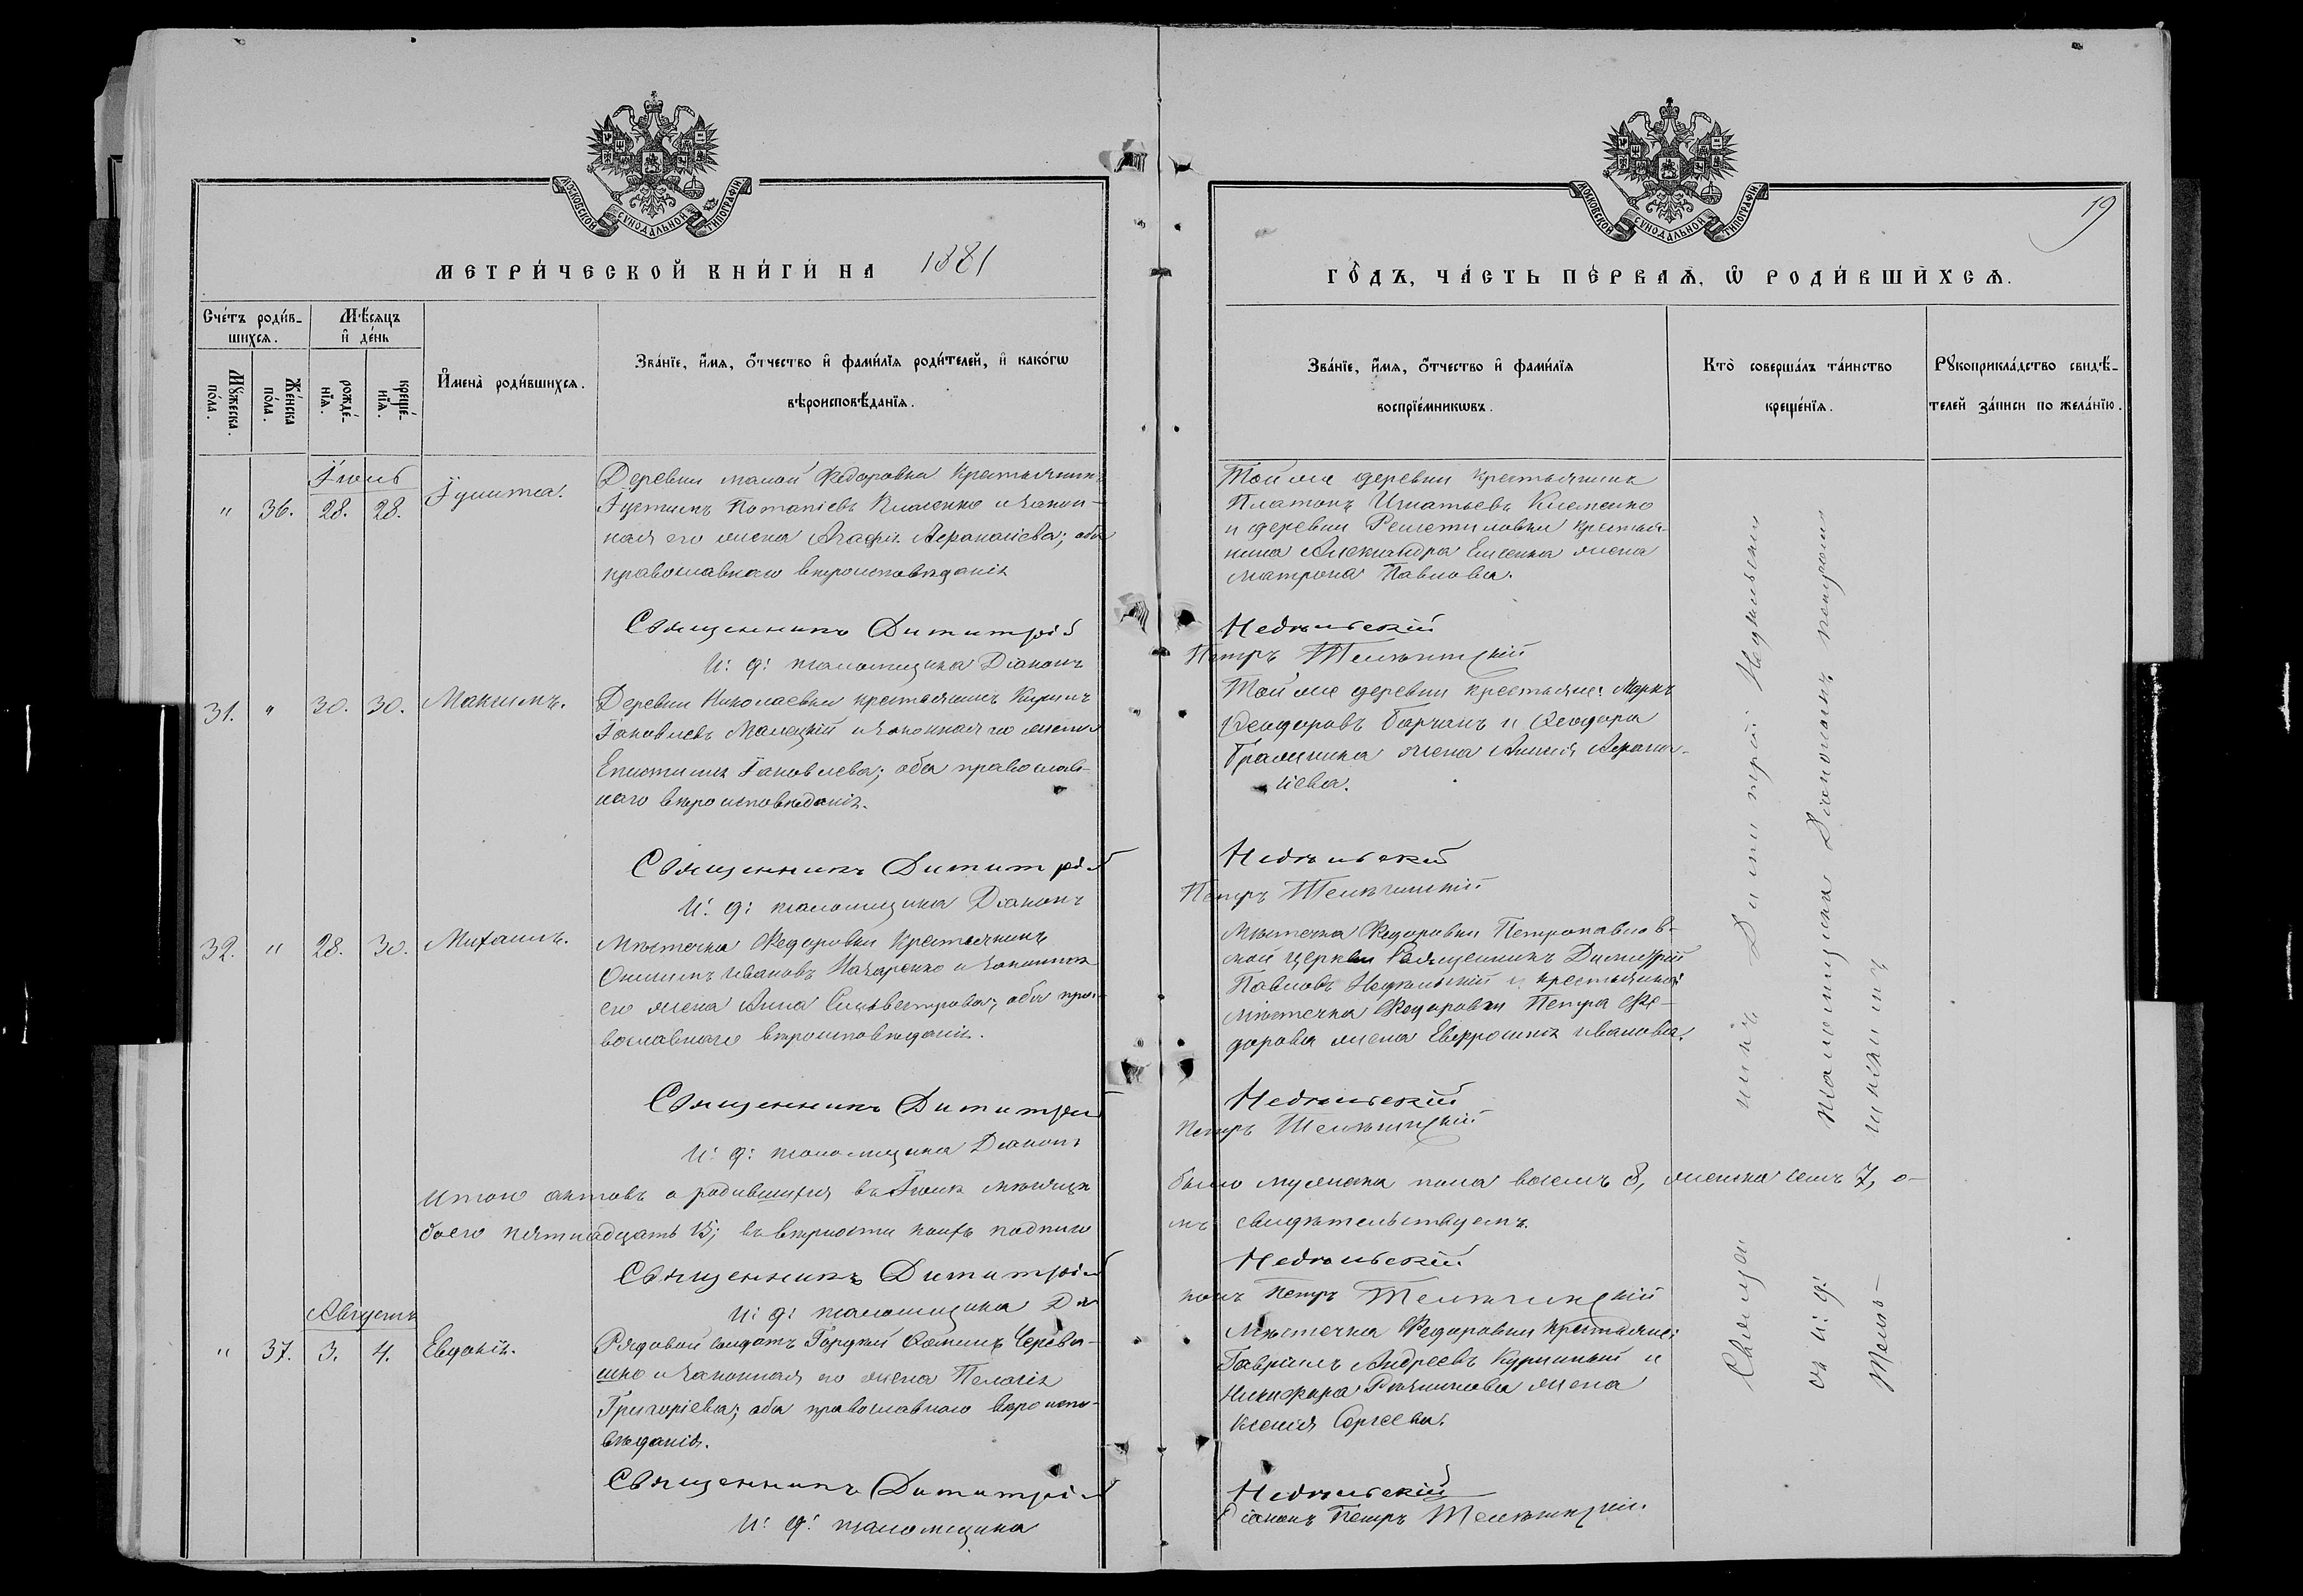 МОСКОВСКОЙ СѴНОДАЛЬНОЙ ТИПОГРАФІИ
МЕТРИ́ЧЕСКОЙ КНИ́ГИ НА 1881
Сче́тъ роди́в-
шихсѧ.
Мꙋ́жеска по́ла.
Же́нска по́ла.
Мѣ́сѧцъ
и҆ де́нь
рожде́-
нїѧ.
креще́-
нїѧ.
И҆мена̀ роди́вшихсѧ.
Зва́нїе, и҆́мѧ, ѻ҆́тчество и҆ фами́лїѧ роди́телей, и҆ како́гѡ
вѣроисповѣ́данїѧ.
Іюль
" 36. 28. 28. Іулитта.
Деревни малой Федоровки крестьянинъ
Іустинъ Потапіевъ Клименко и закон-
ная его жена Агафія Афанасіева; оба
православнаго вѣроисповѣданія
Священникъ Димитрій
И. д. псаломщика Діаконъ
31. " 30. 30. Максимъ.
Деревни Николаевки крестьянинъ Кирилъ
Іаковлевъ Малецкій и законная его жена
Епистимія Іаковлева; оба православ-
наго вѣроисповѣданія.
Священникъ Димитрій
И. д. псаломщика Діаконъ
32. " 28. 30. Михаилъ.
Мѣстечка Федоровки крестьянинъ
Онисимъ Ивановъ Назаренко и законная
его жена Анна Сильвестрова; оба пра-
вославнаго вѣроисповѣданія.
Священникъ Димитрій
И. д. псаломщика Діаконъ
Итого актовъ о родившихся въ Іюлѣ мѣсяцѣ
боего пятнадцать 15; въ вѣрности коихъ подписо
Священникъ Димитрій
И. д. псаломщика Діа
Августъ
" 37. 3. 4. Евдокія.
Рядовой солдатъ Гордій Фоминъ Черева-
шко и законная его жена Пелагія
Григоріева; оба православнаго вѣроиспо-
вѣданія.
Священникъ Димитрій
И. д. псаломщика
19
МОСКОВСКОЙ СѴНОДАЛЬНОЙ ТИПОГРАФІИ
ГО́ДЪ, ЧА́СТЬ ПЕ́РВАѦ, Ѡ҆ РОДИ́ВШИХСѦ.
Зва́нїе, и҆́мѧ, ѻ҆́тчество и҆ фами́лїѧ
воспрїе́мникѡвъ.
Кто̀ соверша́лъ та́инство
креще́нїѧ.
Рꙋкоприкла́дство свидѣ́-
телей за́писи по жела́нїю.
Той же деревни крестьянинъ
Платонъ Игнатьевъ Клименко
и деревни Решетиловки крестья-
нина Александра жена
Матрона Павлова.
Недѣльскій
Петръ
Той же деревни крестьяне: Маркъ
Феодоровъ Барчанъ и Феодора
жена Анна Афана-
сіева.
Недѣльскій
Петръ
Мѣстечка Федоровки Петропавлов-
ской церкви Священникъ Димитрій
Павловъ Недѣльскій и крестьянина
мѣстечка Федоровки Петра Фе-
дорова жена Евфросинія Иванова.
Недѣльскій
Петръ
было мужеска пола восемъ 8, женска семъ 7, о-
мъ свидѣтельствуемъ.
Недѣльскій
конъ Петръ
Мѣстечка Федоровки крестьяне:
Гавріилъ Андреевъ и
Никифора жена
Ксенія Сергеева.
Недѣльскій
Діаконъ Петръ
Священ
никъ Димитрій Недѣльскій
съ и. д.
псаломщика Діакономъ Петромъ